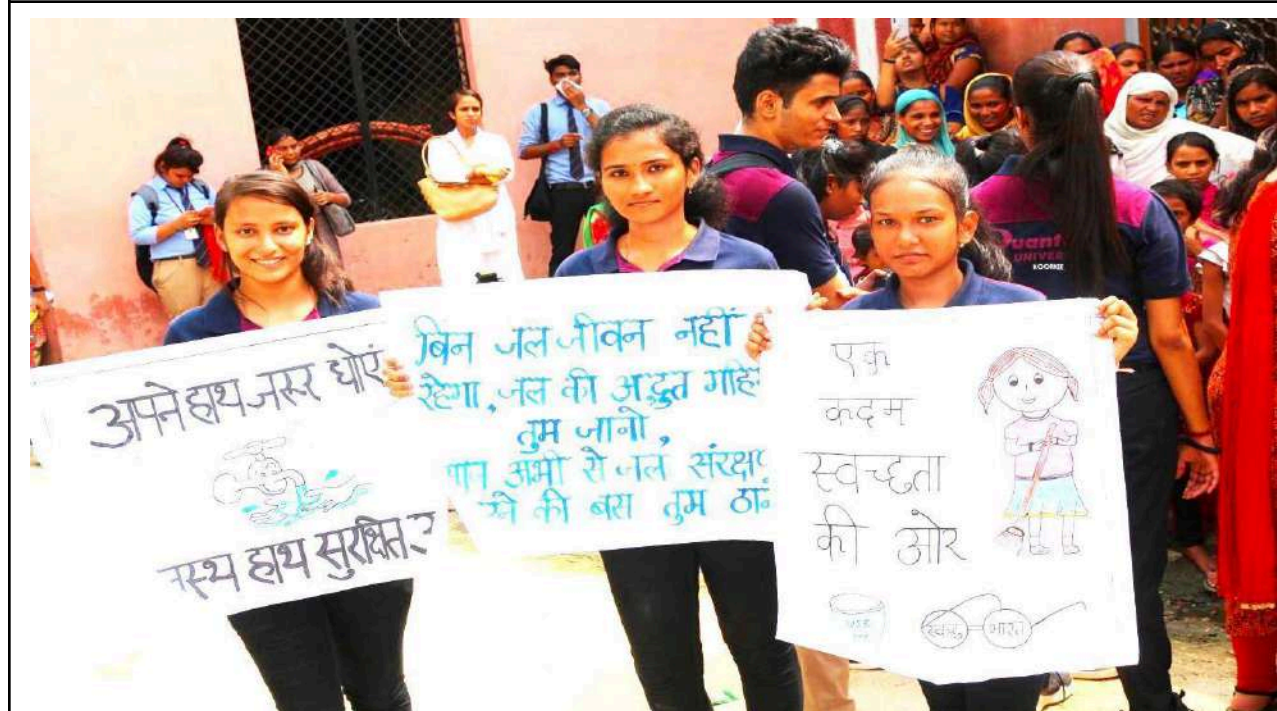 अपने हाथ जरूर धोएं
हाथ सुरक्षित
बिन जल जीवन नहीं
रहेगा, जल की अद्भुत
तुम जानो,
अभी से जल
की बस तुम
एक
कदम
स्वच्छता
की ओर
USE
स्वच्छ भारत
UNIVER
ROORKEE